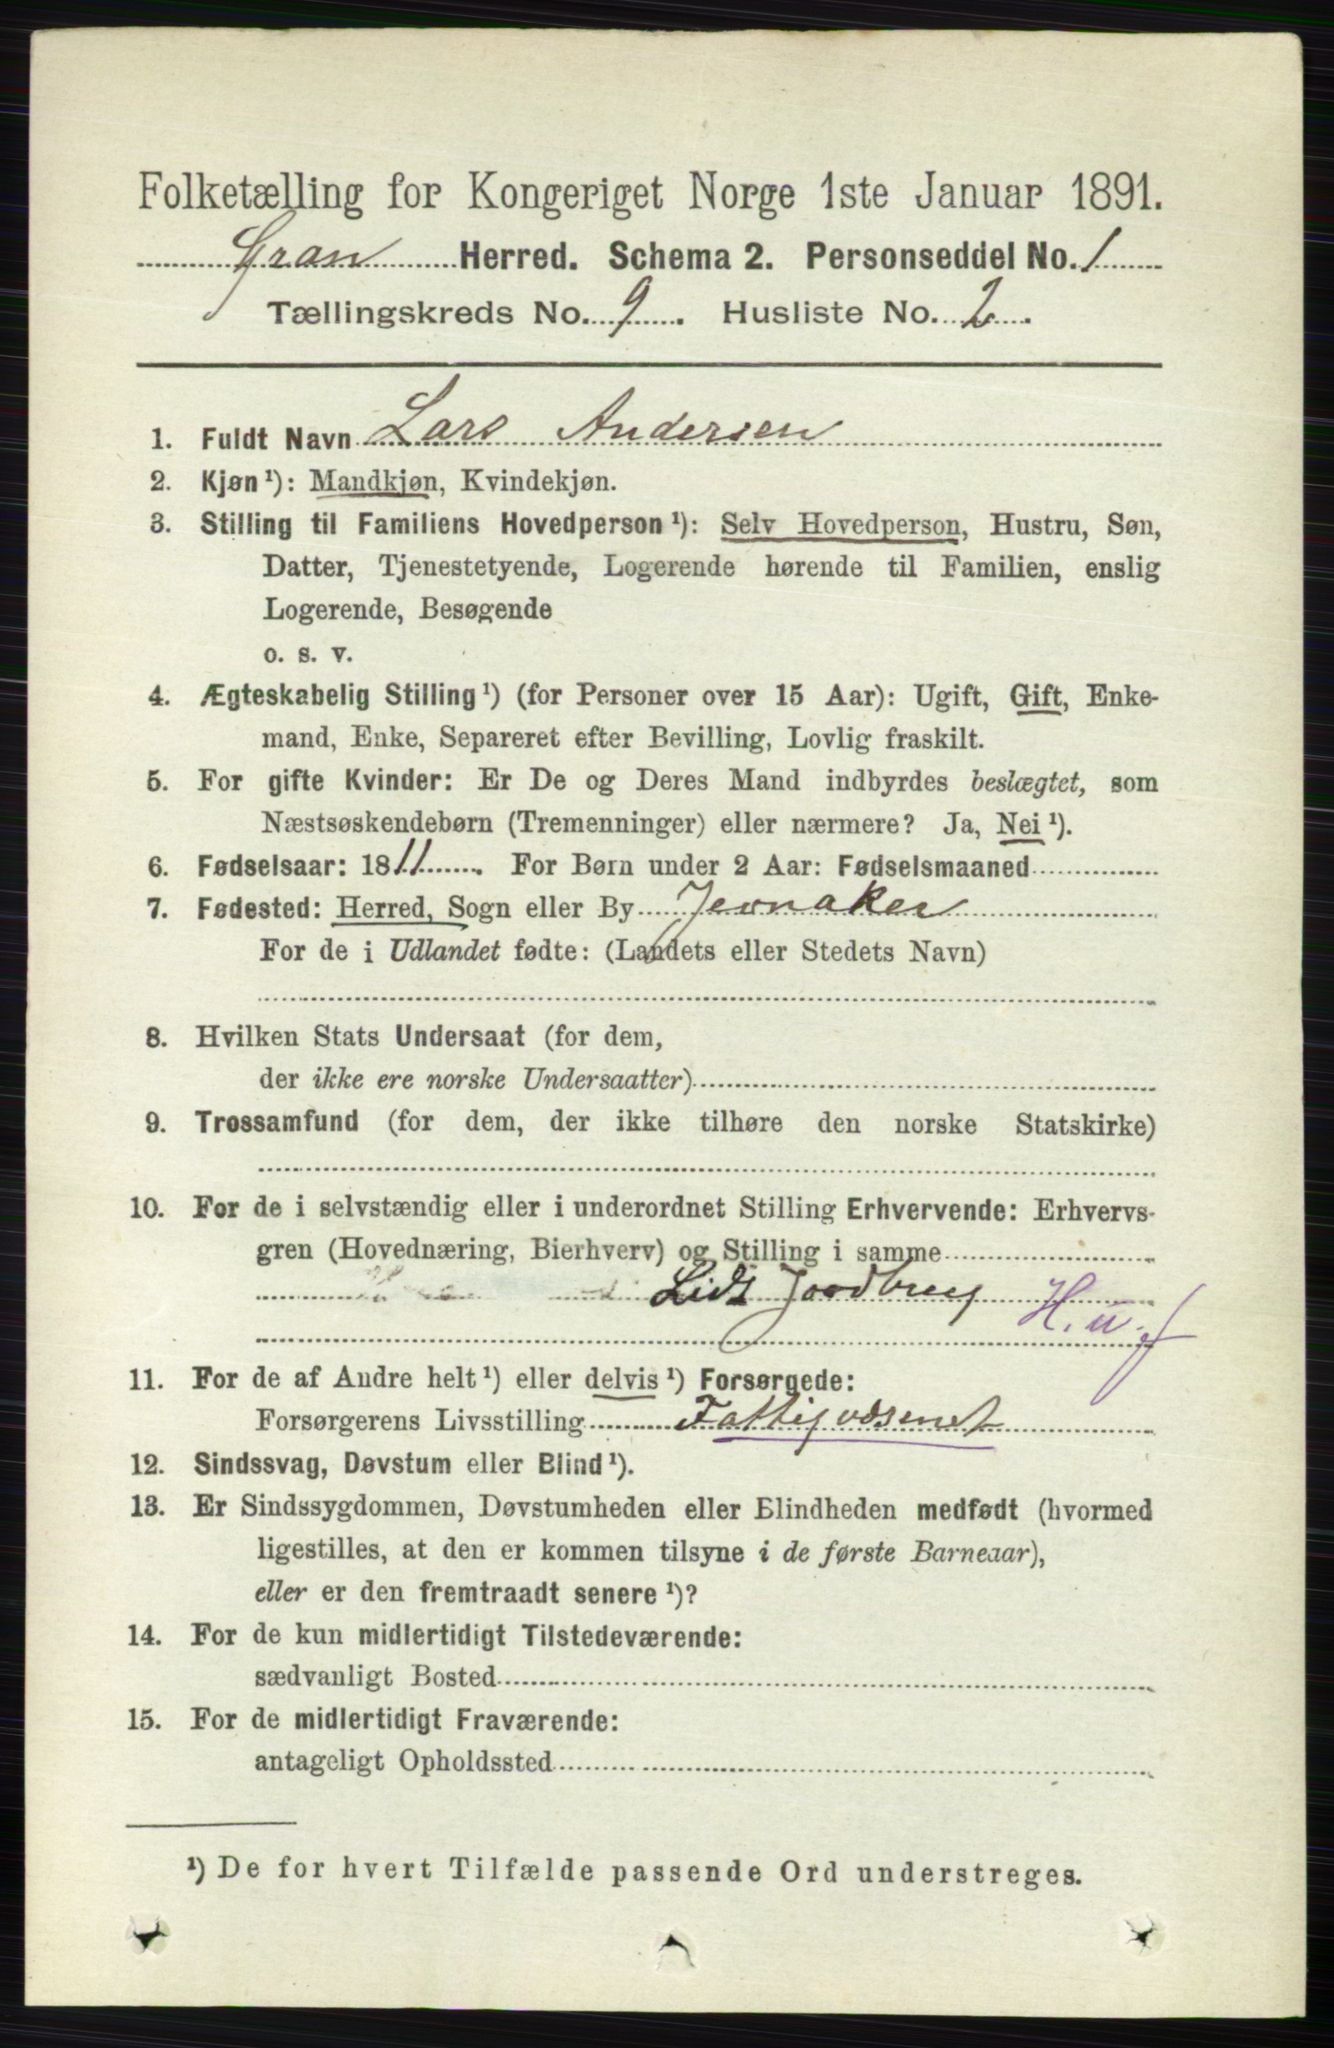 Folketælling for Kongeriget Norge 1ste Januar 1891.
Gran Herred. Schema 2. Personseddel No. 1
Tællingskreds No. 9. Husliste No. 2.
1. Fuldt Navn Lars Andersen
2. Kjøn ¹): Mandkjøn, Kvindekjøn.
3. Stilling til Familiens Hovedperson ¹): Selv Hovedperson, Hustru, Søn,
Datter, Tjenestetyende, Logerende hørende til Familien, enslig
Logerende, Besøgende
o. s. v.
4. Ægteskabelig Stilling ¹) (for Personer over 15 Aar): Ugift, Gift, Enke-
mand, Enke, Separeret efter Bevilling, Lovlig fraskilt.
5. For gifte Kvinder: Er De og Deres Mand indbyrdes beslægtet, som
Næstsøskendebørn (Tremenninger) eller nærmere? Ja, Nei ¹).
6. Fødselsaar: 1811. For Børn under 2 Aar: Fødselsmaaned
7. Fødested: Herred, Sogn eller By Jevnaker
For de i Udlandet fødte: (Landets eller Stedets Navn)
8. Hvilken Stats Undersaat (for dem,
der ikke ere norske Undersaatter)
9. Trossamfund (for dem, der ikke tilhøre den norske Statskirke)
10. For de i selvstændig eller i underordnet Stilling Erhvervende: Erhvervs-
gren (Hovednæring, Bierhverv) og Stilling i samme
Lidt Jordbrug H. u. f
11. For de af Andre helt ¹) eller delvis ¹) Forsørgede:
Forsørgerens Livsstilling Fattigvæsenet
12. Sindssvag, Døvstum eller Blind ¹).
13. Er Sindssygdommen, Døvstumheden eller Blindheden medfødt (hvormed
ligestilles, at den er kommen tilsyne i de første Barneaar),
eller er den fremtraadt senere ¹)?
14. For de kun midlertidigt Tilstedeværende:
sædvanligt Bosted
15. For de midlertidigt Fraværende:
antageligt Opholdssted
¹) De for hvert Tilfælde passende Ord understreges.